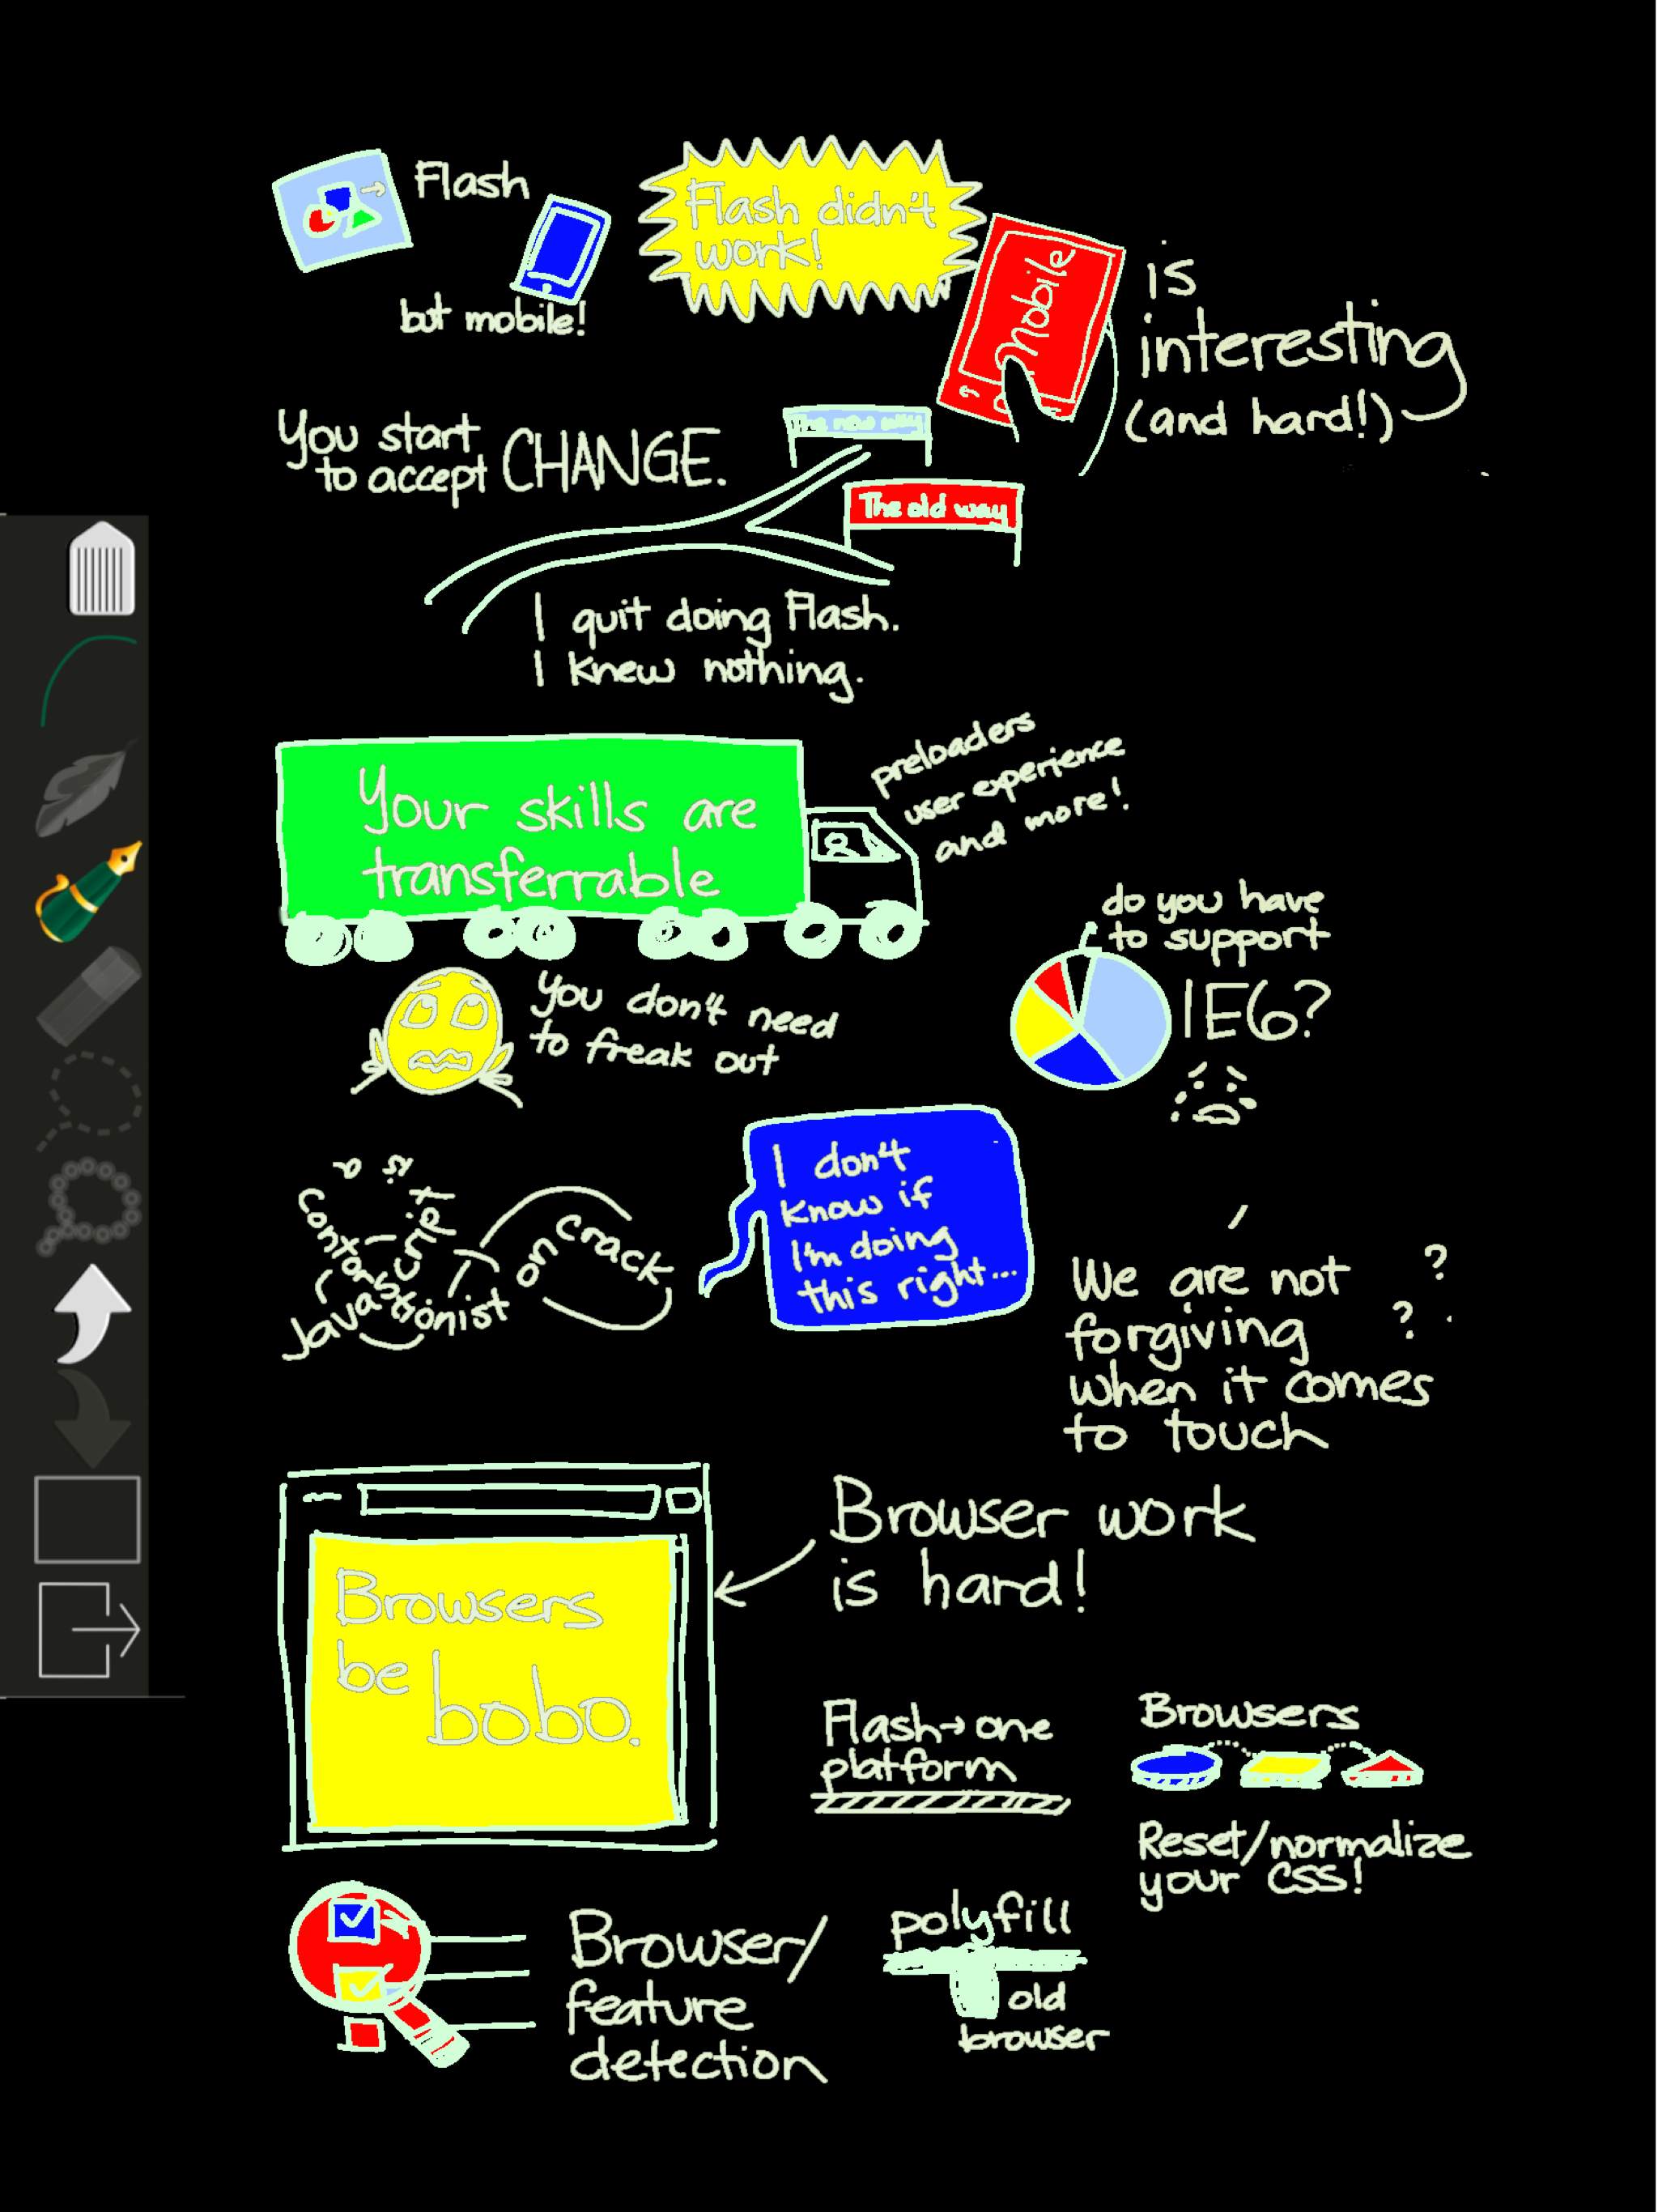 Flash
but mobile!
Flash didn't
work!
Mobile
is
interesting
(and hard!)
You start
to accept CHANGE.
The new way
The old way
I quit doing Flash.
I knew nothing.
Your skills are
transferrable
preloaders
user experience
and more!
you don't need
to freak out
do you have
to support
IE6?
Javascript is a contortionist
on crack
I don't
know if
I'm doing
this right...
We are not ?
forgiving ?
when it comes
to touch
Browser work
is hard!
Browsers
be bobo.
Flash→one
platform
Browsers
Reset/normalize
your CSS!
Browser/
feature
detection
polyfill
old
browser